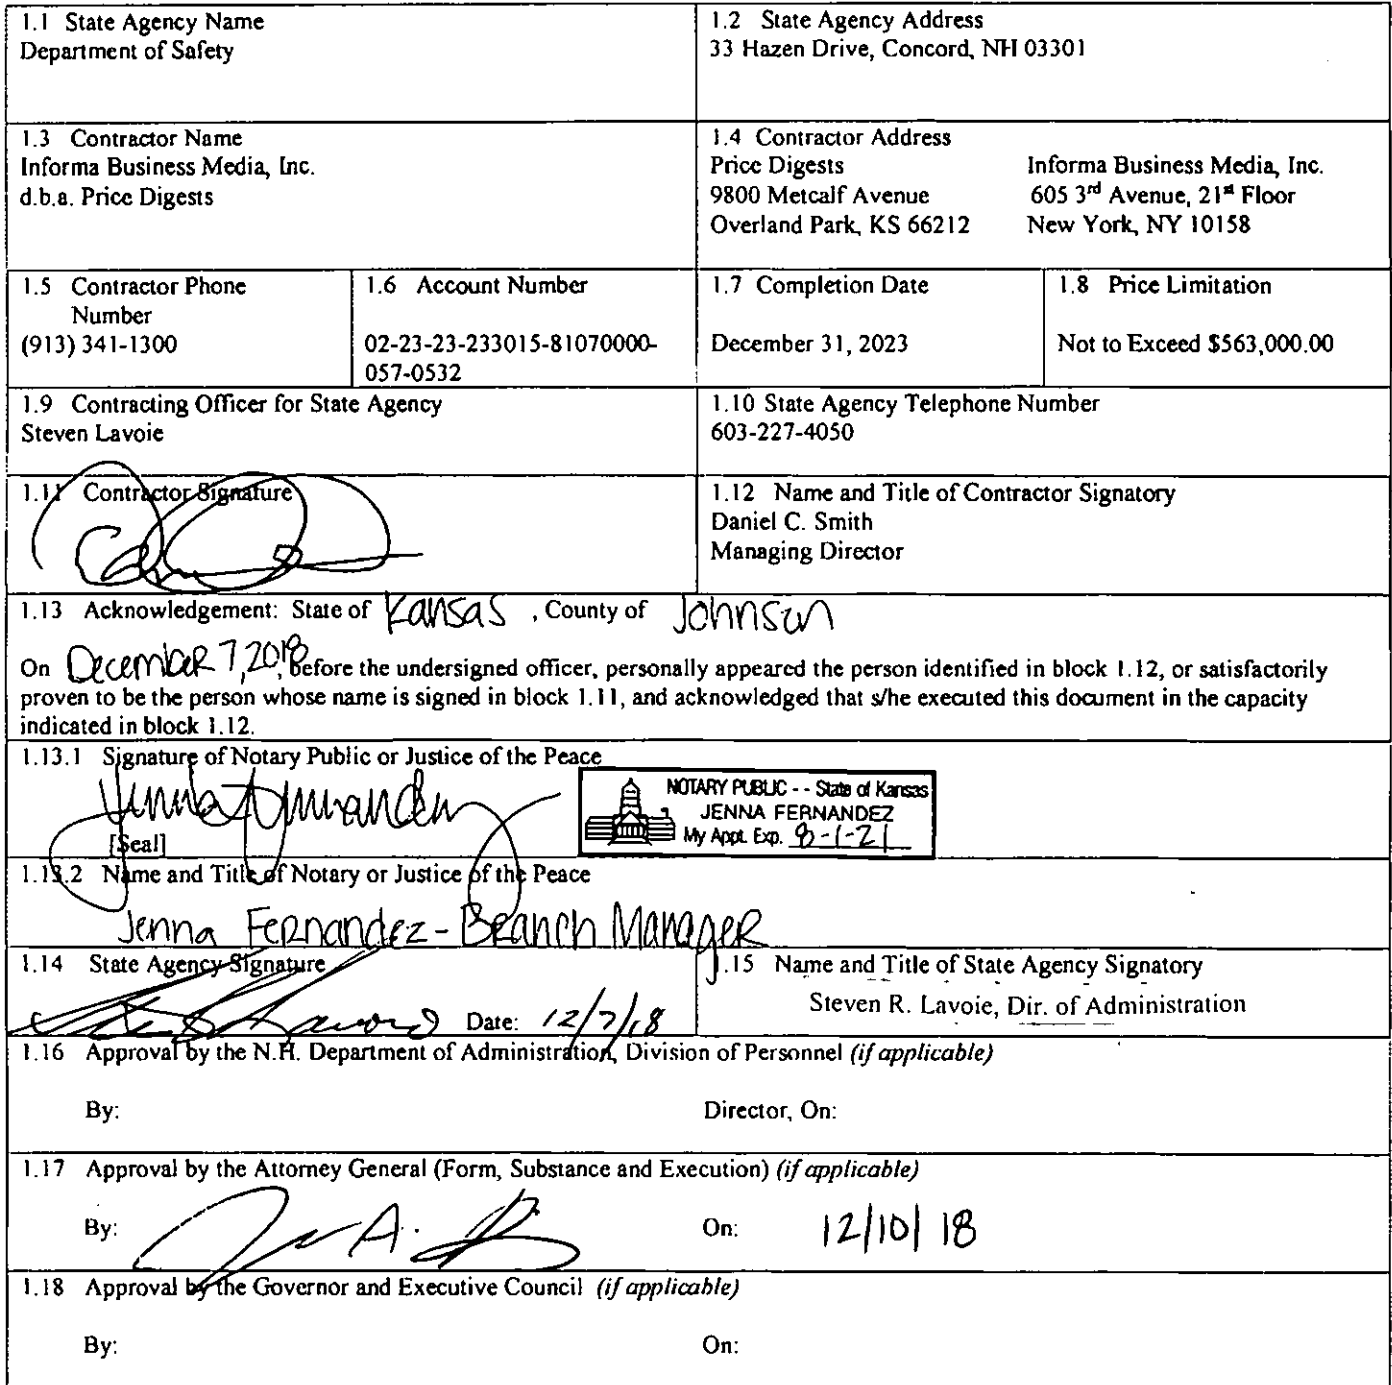 1.1 State Agency Name
Department of Safety
1.2 State Agency Address
33 Hazen Drive, Concord, NH 03301
1.3 Contractor Name
Informa Business Media, Inc.
d.b.a. Price Digests
1.4 Contractor Address
Price Digests
9800 Metcalf Avenue
Overland Park, KS 66212
Informa Business Media, Inc.
605 3rd Avenue, 21st Floor
New York, NY 10158
1.5 Contractor Phone
Number
(913) 341-1300
1.6 Account Number
02-23-23-233015-81070000-
057-0532
1.7 Completion Date
December 31, 2023
1.8 Price Limitation
Not to Exceed $563,000.00
1.9 Contracting Officer for State Agency
Steven Lavoie
1.10 State Agency Telephone Number
603-227-4050
1.11 Contractor Signature
1.12 Name and Title of Contractor Signatory
Daniel C. Smith
Managing Director
1.13 Acknowledgement: State of Kansas , County of Johnson
On December 7, 2018, before the undersigned officer, personally appeared the person identified in block 1.12, or satisfactorily
proven to be the person whose name is signed in block 1.11, and acknowledged that s/he executed this document in the capacity
indicated in block 1.12.
1.13.1 Signature of Notary Public or Justice of the Peace
Jenna Fernandez
[Seal]
NOTARY PUBLIC - - State of Kansas
JENNA FERNANDEZ
My Appt. Exp. 8-1-21
1.13.2 Name and Title of Notary or Justice of the Peace
Jenna Fernandez - Branch Manager
1.14 State Agency Signature
Date: 12/7/18
1.15 Name and Title of State Agency Signatory
Steven R. Lavoie, Dir. of Administration
1.16 Approval by the N.H. Department of Administration, Division of Personnel (if applicable)
By: Director, On:
1.17 Approval by the Attorney General (Form, Substance and Execution) (if applicable)
By: On: 12/10/18
1.18 Approval by the Governor and Executive Council (if applicable)
By: On: